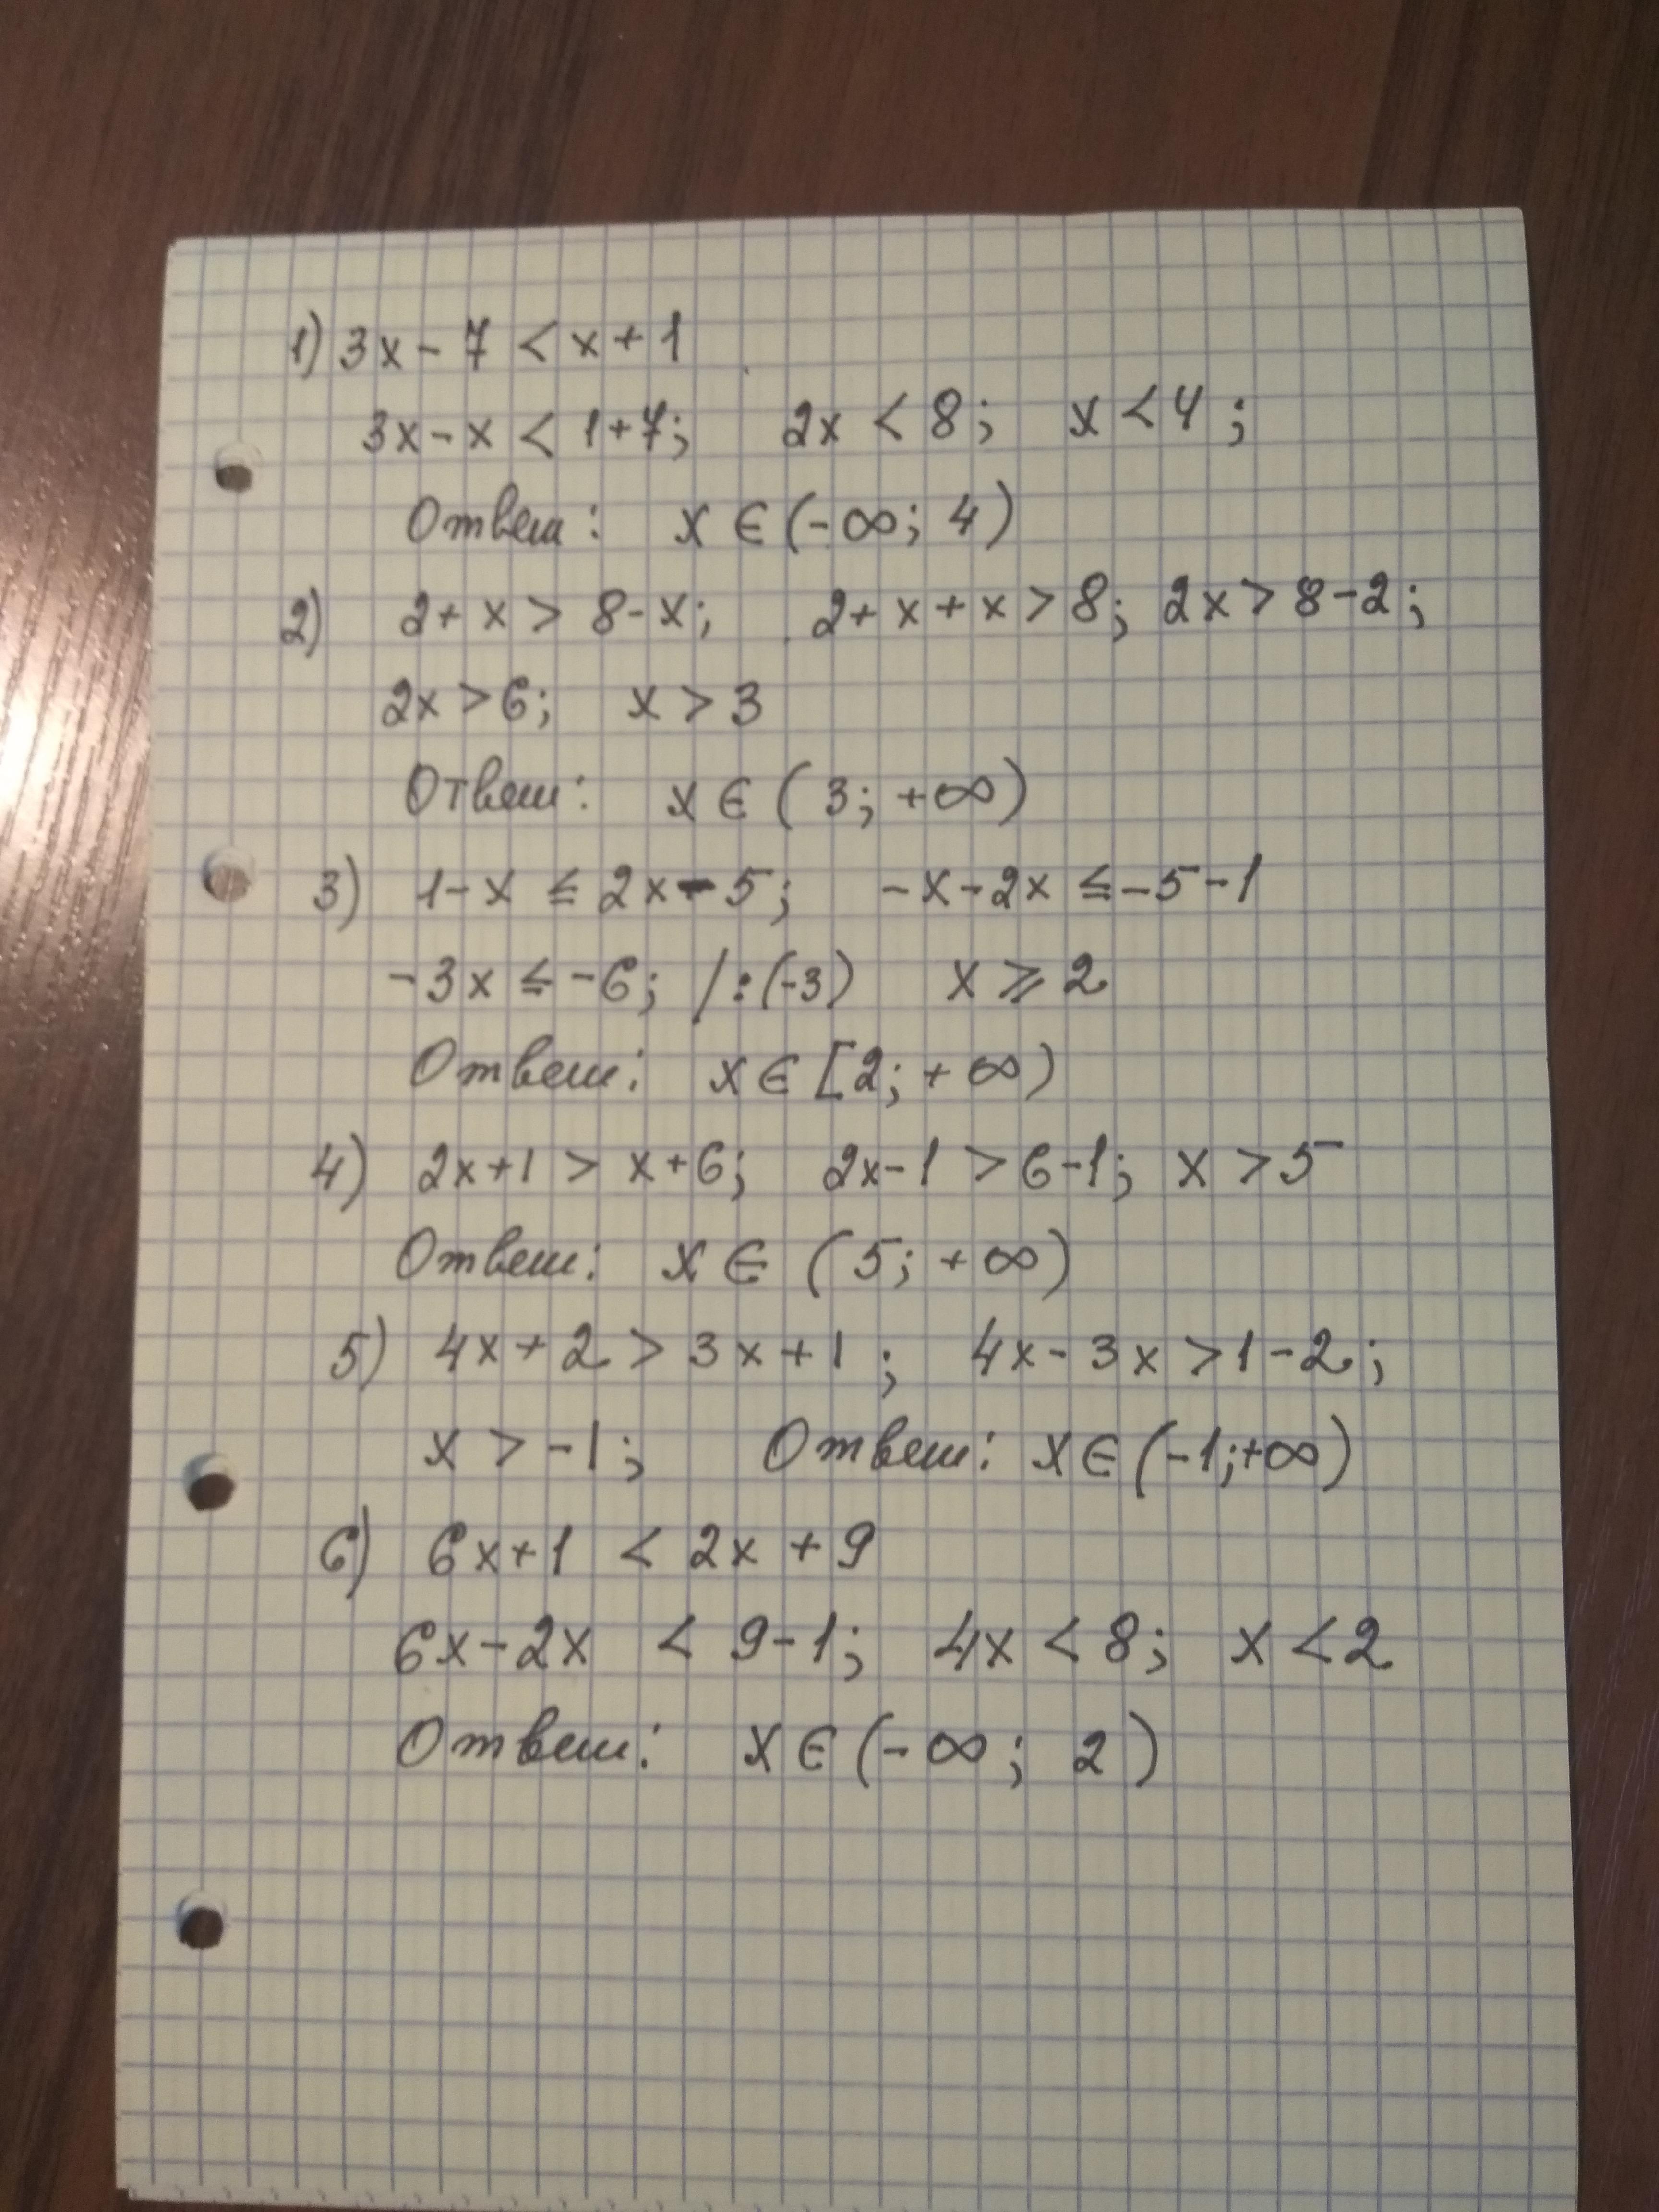 1) 3x - 7 < x + 1
3x - x < 1 + 7; 2x < 8; x < 4;
Ответ: x ∈ (-∞; 4)
2) 2 + x > 8 - x; 2 + x + x > 8; 2x > 8 - 2;
2x > 6; x > 3
Ответ: x ∈ (3; +∞)
3) 1 - x ≤ 2x - 5; -x - 2x ≤ -5 - 1
-3x ≤ -6; /:(-3) x ⩾ 2
Ответ: x ∈ [2; +∞)
4) 2x + 1 > x + 6; 2x - 1 > 6 - 1; x > 5
Ответ: x ∈ (5; +∞)
5) 4x + 2 > 3x + 1; 4x - 3x > 1 - 2;
x > -1; Ответ: x ∈ (-1; +∞)
6) 6x + 1 < 2x + 9
6x - 2x < 9 - 1; 4x < 8; x < 2
Ответ: x ∈ (-∞; 2)